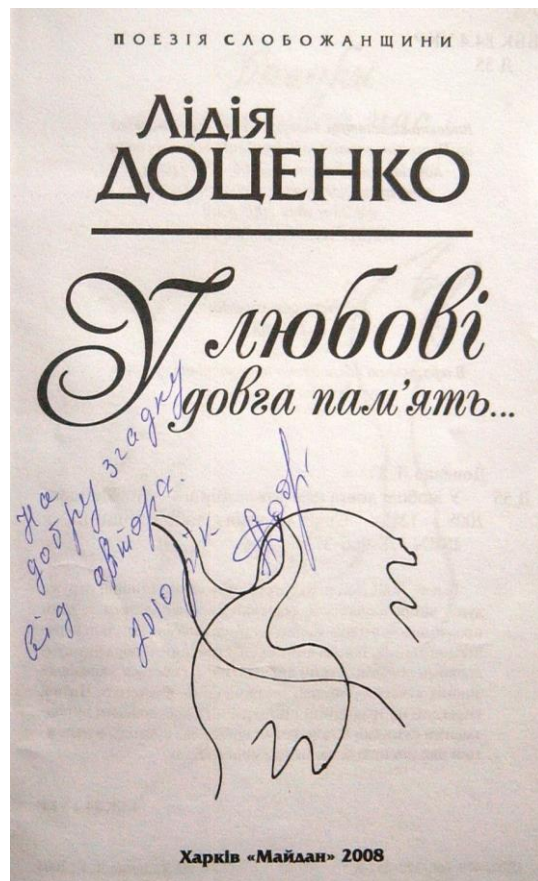 ПОЕЗІЯ СЛОБОЖАНЩИНИ
Лідія
ДОЦЕНКО
У любові
довга пам'ять...
На
добру згадку
від автора.
2010 рік
Харків «Майдан» 2008